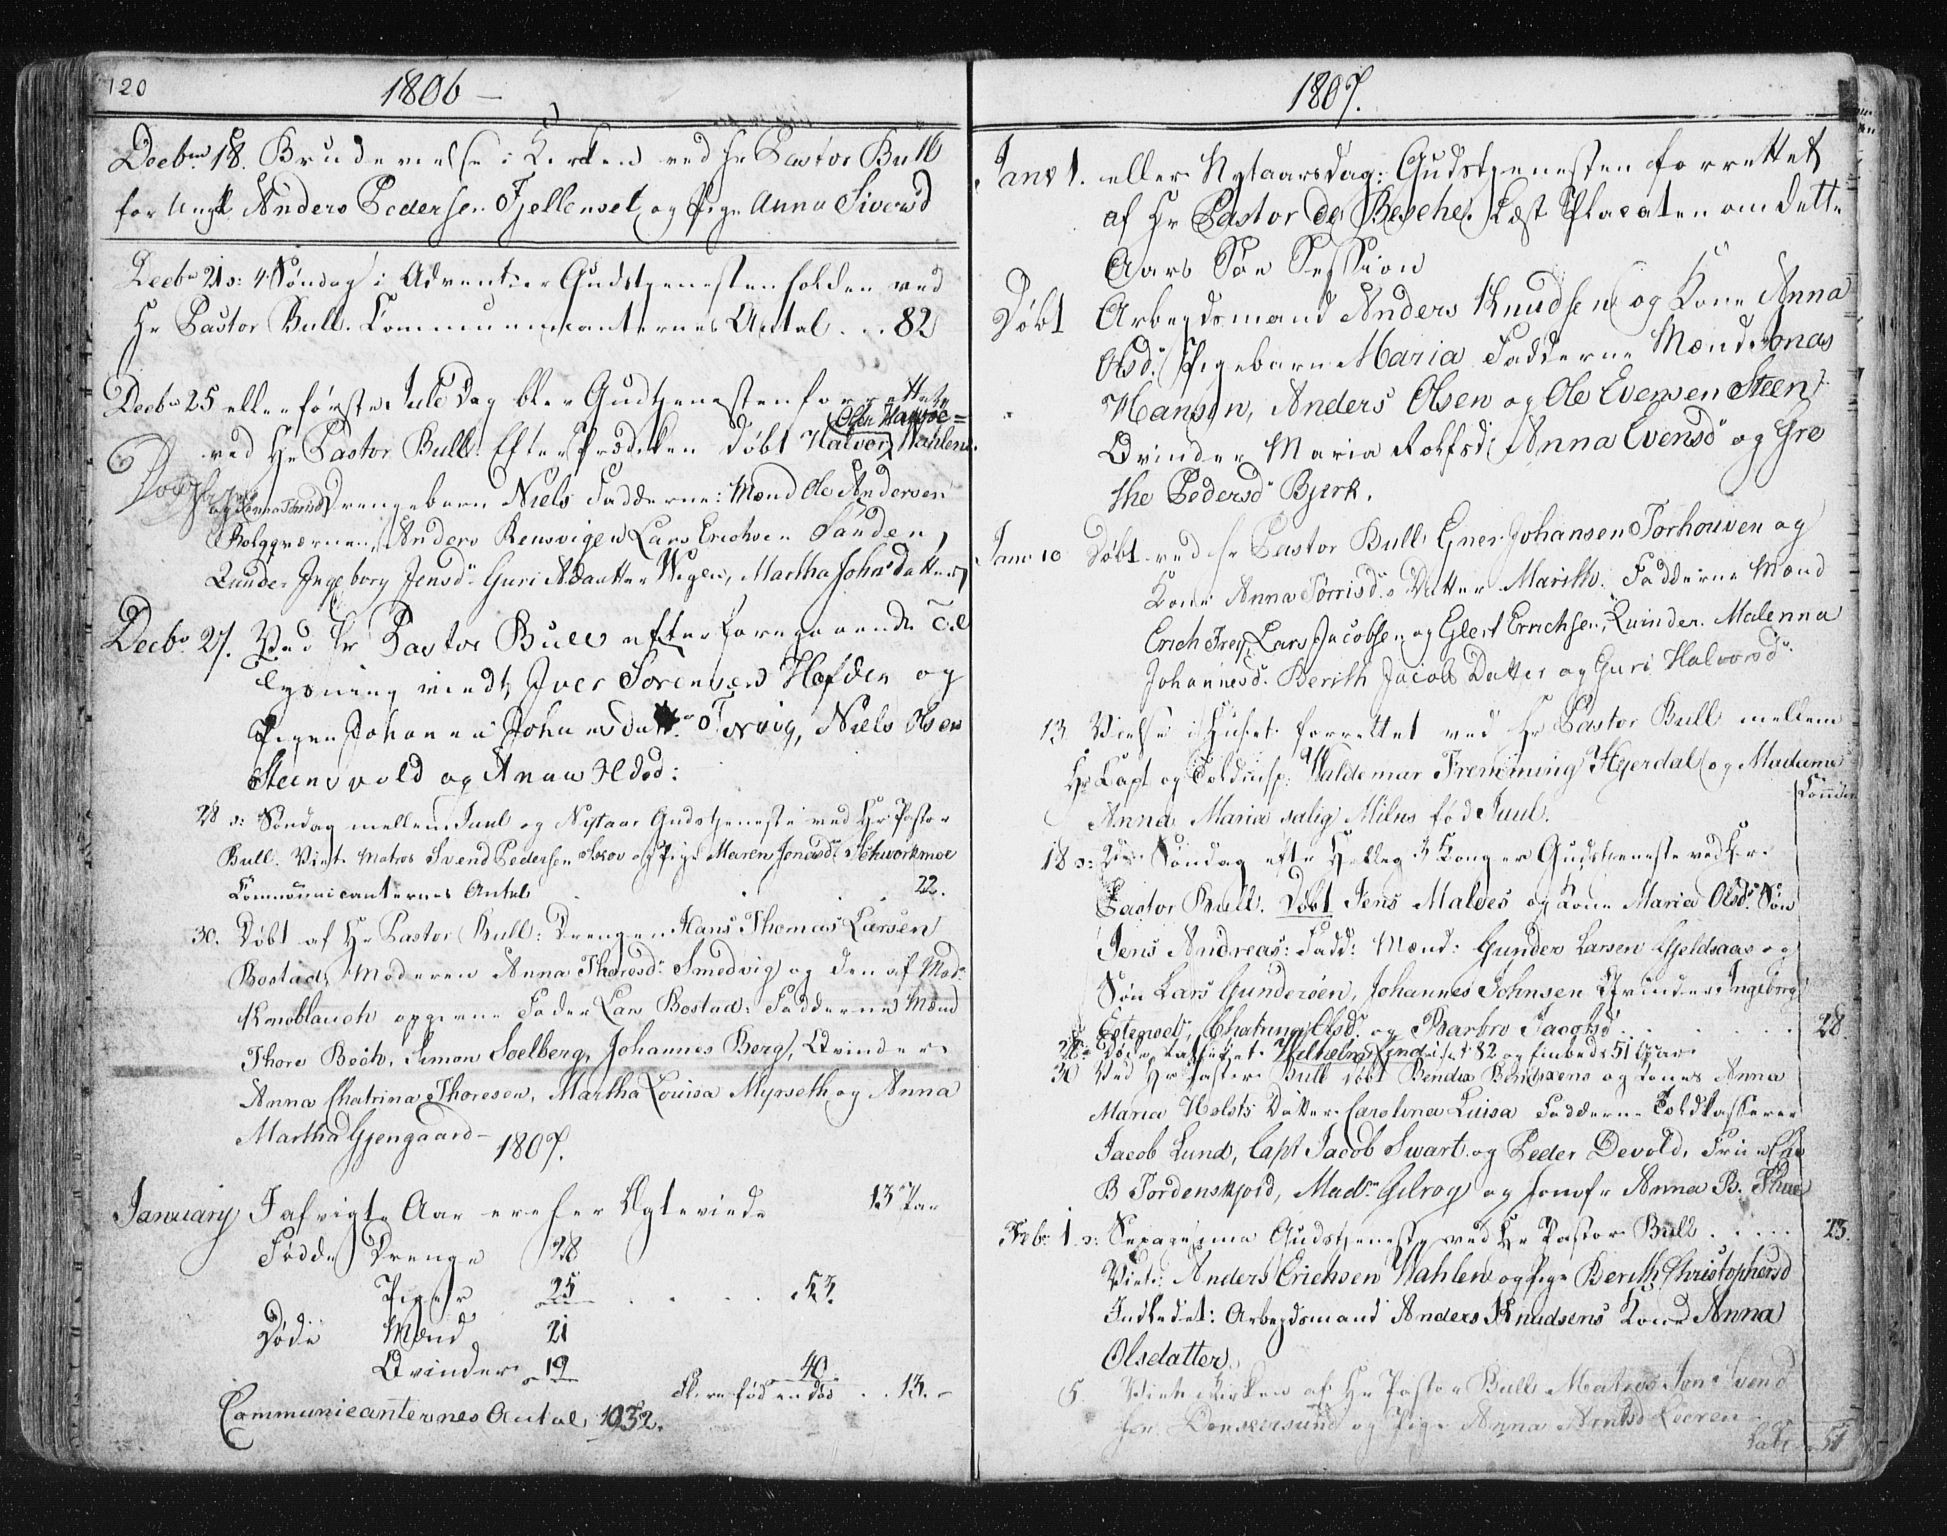 120
1806 –
Decbr 18. Brudevielse i Kirken ved Hr Pastor Bull
for Ungk Anders Pedersen Fjellenset og Pige Anna Siversd
Decbr 21 o: 4 Søndag i Advent er Gudstjenesten holden ved
Hr Pastor Bull. Communicanternes Antal . . . 82
Decbr 25 eller første Jule Dag blev Gudstjenesten forrettet
ved Hr Pastor Bull. Efter Prædiken Døbt Halvor Wahlens
Drengebarn Niels Fadderne: Mænd Ole Andersen
Anders Rensvigen Lars Erichsen Sanden,
Qvinder Ingeborg Jensdr Guri Wegen, Martha Johns Datter
Decbr 27. Ved Hr Pastor Bull efter foregaaende Til
lysning viedt Iver Sørensen Hofden og
Pigen Johanna Johnesdattr Tervig, Niels Olsen
Steensvold og Anna
28 o: Søndag mellem Juul og Nytaar Gudstjeneste ved Hr Pastor
Bull. Viet Matros Svend Pedersen Skov og Pige Maren Jonasdr Schworkmoe
Communicanternes Antal . . . 22.
30. Døbt af Hr Pastor Bull: Drengen Hans Thomas Larsen
Bostad, Moderen Anna Thoresdr Smedvig og den af Madr
Knoblauch opgivne Fader Lars Bostad: Fadderne Mænd
Thore Beck, Simon Soelberg, Johannes Berg, Qvinder
Anna Chatrina Thoresen, Martha Lovisa Myrseth og Anna
Martha Gjengaard –
1807.
January I afvigte Aar ere her Ægteviede 13 Par
Fødde Drenge 28
Piger 25 . . . . . 53
Døde Mænd 21
Qvinder 19 40
Flere fød end dø . . 13. –
Communicanternes Antal 1032.
1807.
Janv 1. eller Nytaarsdag: Gudstjenesten forrettet
af Hr Pastor de Besche. Læst Placaten om dette
Aars Søe Session
Døbt Arbeydsmand Anders Knudsen og Kone Anna
Olsdr Pigebarn Maria Fadderne Mænd Jonas
Hansen, Anders Olsen og Ole Evensen Steen
Qvinder Maria Rolfsdr Anna Evensdr og Gre
the Pedersdr Bjerk.
Janv 10 Døbt ved Hr Pastor Bull Johansen Torhousen og
Kone Anna Tørrisdr Datter Marith. Fadderne Mænd
Erich Lars Jacobsen og Glert Errichsen, Qvinder Malenna
Johannesdr Berith Jacobs Datter og Guri Halvorsdr
13 Vielse i Huset forrettet ved Hr Pastor Bull mellem
Hr Capt og Toldinsp: Waldemar Fremming Hejerdal og Madame
Anna Maria salig Milns fød Juul.
18 o: 2den Søndag efter Hellig 3 Konger Gudstjeneste ved Hr
Pastor Bull. Døbt Jens Maloes og Kone Maria Olsdr Søn
Jens Andreas: Fadd: Mænd: Gunder Larsen Gjeldsaas og
Søn Lars Gundersen, Johannes Johnsen Qvinder Ingeborg
Chatrina Olsdr og Barbro Jacobsd . . . . . . 28
Wilhelm Lind 82 og 51 Aar
30 Ved Hr Pastor Bull døbt Bendix Bendixens og Kones Anna
Maria Holsts Datter Carolina Luisa Fadderne Toldkasserer
Jacob Lund, Capt Jacob Swart og Peder Devold, Frue
B Tordenskjold, Madm Gilroy og Jomfr Anna B.
Febr 1 o: Sexagesima Gudstjeneste ved Hr Pastor Bull . . . . 23.
Viet: Anders Erichsen Wahlen og Pige Berith Christophersd
Indledet: Arbeydsmand Anders Knudsens Kone Anna
Olsdatter.
5 Viet i Kirken af Hr Pastor Bull Matros Jon Svend
sen og Pige Anna Arntsd Leeren
51